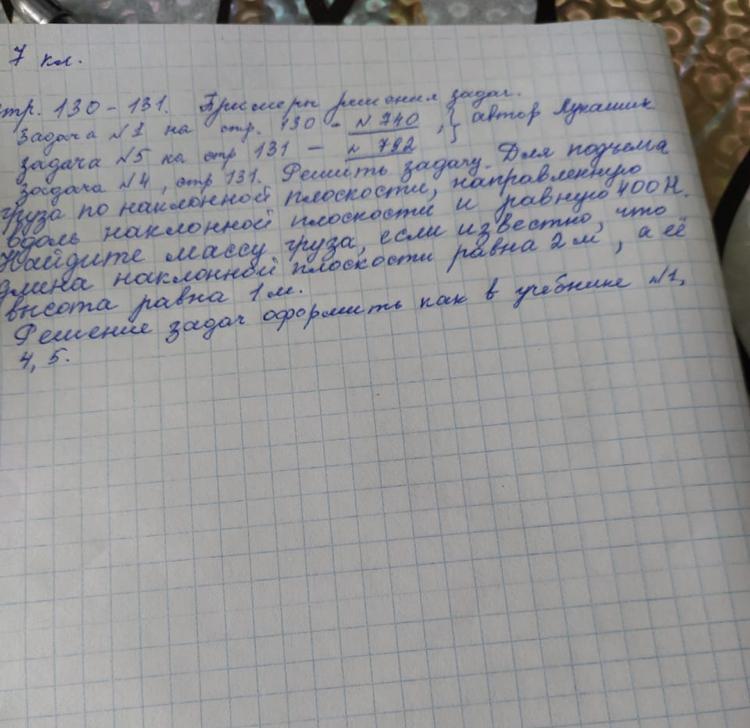 7 кл.
стр. 130-131. Примеры решения задач.
Задача №1 на стр. 130 - №740 , } автор Лукашик
задача №5 на стр 131 - №792
задача №4, стр 131. Решить задачу. Для подъема
груза по наклонной плоскости, направленную
вдоль наклонной плоскости и равную 400 Н.
Найдите массу груза, если известно, что
длина наклонной плоскости равна 2 м , а её
высота равна 1 м.
Решение задач оформить как в учебнике №1,
4, 5.